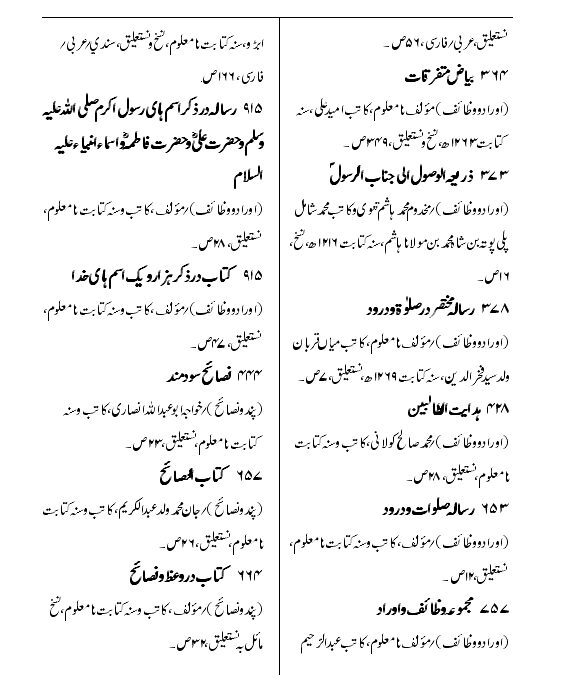 نستعلیق، عربی / فارسی، ۵۶ص۔
۳۶۴ بیاض متفرقات
(اوراد و وظائف) / مؤلف نامعلوم، کاتب امید علی، سنہ
کتابت ۱۲۶۳ھ، نسخ و نستعلیق، ۳۴۹ص۔
۳۷۳ ذریعہ الوصول الی جناب الرسولؐ
(اوراد و وظائف) / مخدوم محمد ہاشم ٹھوی و کاتب محمد شامل
پلی پوتہ بن شاہ محمد بن مولانا ہاشم، سنہ کتابت ۱۲۱۶ھ، نسخ،
۱۶ص۔
۳۷۸ رسالہ مختصر در صلوٰۃ و درود
(اوراد و وظائف) / مؤلف نامعلوم، کاتب میاں قربان
ولد سید فخر الدین، سنہ کتابت ۱۲۶۹ھ، نستعلیق، ۷ص۔
۴۲۸ ہدایت الطالبین
(اوراد و وظائف) / محمد صالح کولانی، کاتب و سنہ کتابت
نامعلوم، نستعلیق، ۲۸ص۔
۶۵۳ رسالہ صلوات و درود
(اوراد و وظائف) / مؤلف، کاتب و سنہ کتابت نامعلوم،
نستعلیق، ۱۲ص۔
۷۵۷ مجموعہ وظائف و اوراد
(اوراد و وظائف) / مؤلف نامعلوم، کاتب عبدالرحیم
ابڑو، سنہ کتابت نامعلوم، نسخ و نستعلیق، سندی / عربی /
فارسی، ۱۶۶ص۔
۹۱۵ رسالہ در ذکر اسم ہای رسول اکرم صلی اللہ علیہ
وسلم و حضرت علیؓ و حضرت فاطمہؓ و اسماء انبیاء علیہ
السلام
(اوراد و وظائف) / مؤلف، کاتب و سنہ کتابت نامعلوم،
نستعلیق، ۲۸ص۔
۹۱۵ کتاب در ذکر ہزار و یک اسم ہای خدا
(اوراد و وظائف) / مؤلف، کاتب و سنہ کتابت نامعلوم،
نستعلیق، ۴۷ص۔
۴۴۴ نصائح سودمند
(پند و نصائح) / خواجہ ابو عبداللہ انصاری، کاتب و سنہ
کتابت نامعلوم، نستعلیق، ۲۳ص۔
۶۵۷ کتاب النصائح
(پند و نصائح) / جان محمد ولد عبدالکریم، کاتب و سنہ کتابت
نامعلوم، نستعلیق، ۲۶ص۔
۶۶۴ کتاب در وعظ و نصائح
(پند و نصائح) / مؤلف، کاتب و سنہ کتابت نامعلوم، نسخ
مائل بہ نستعلیق، ۳۲ص۔